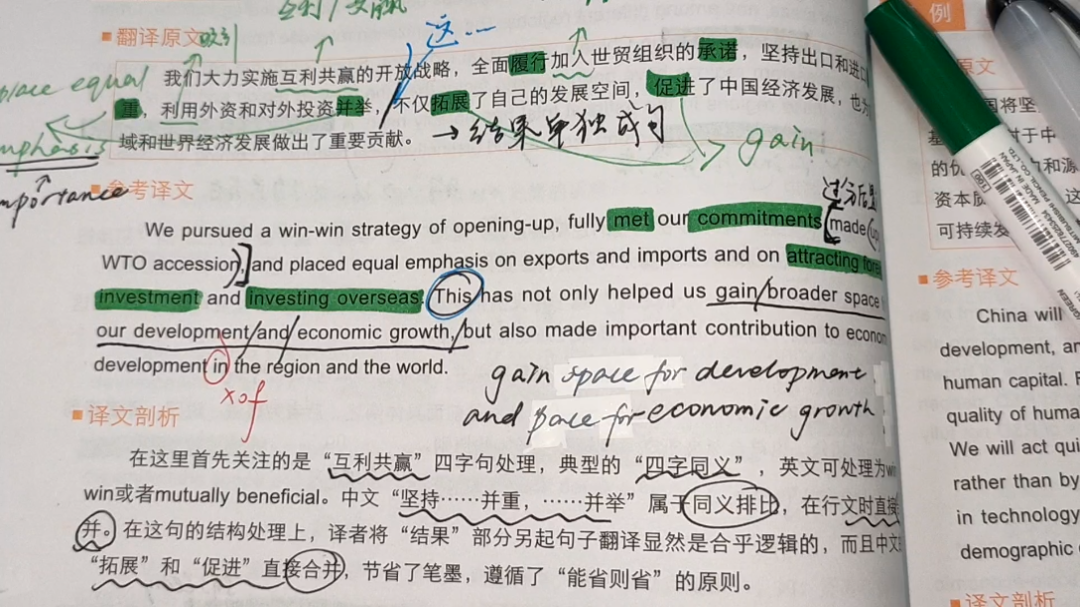 互利/共赢
翻译原文
吸引
这...
place equal
我们大力实施互利共赢的开放战略，全面履行加入世贸组织的承诺，坚持出口和进口
重，利用外资和对外投资并举，不仅拓展了自己的发展空间，促进了中国经济发展，也为
emphasis
域和世界经济发展做出了重要贡献。
→结果单独成句
gain
importance
参考译文
We pursued a win-win strategy of opening-up, fully met our commitments (made
WTO accession), and placed equal emphasis on exports and imports and on attracting
investment and investing overseas. This has not only helped us gain/broader space
our development/and/economic growth,/but also made important contribution to
development in the region and the world.
xof
gain space for development
and pace for economic growth
译文剖析
在这里首先关注的是“互利共赢”四字句处理，典型的“四字同义”，英文可处理为win
win或者mutually beneficial。中文“坚持……并重，……并举”属于同义排比，在行文时直接
并。在这句的结构处理上，译者将“结果”部分另起句子翻译显然是合乎逻辑的，而且中文
“拓展”和“促进”直接合并，节省了笔墨，遵循了“能省则省”的原则。
例
原文
国将坚
对于中
的优
和源
资本质
这
可持续发
参考译文
China will
development, an
human capital.
quality of huma
We will act qui
rather than by
in technology
demographic
译文剖析